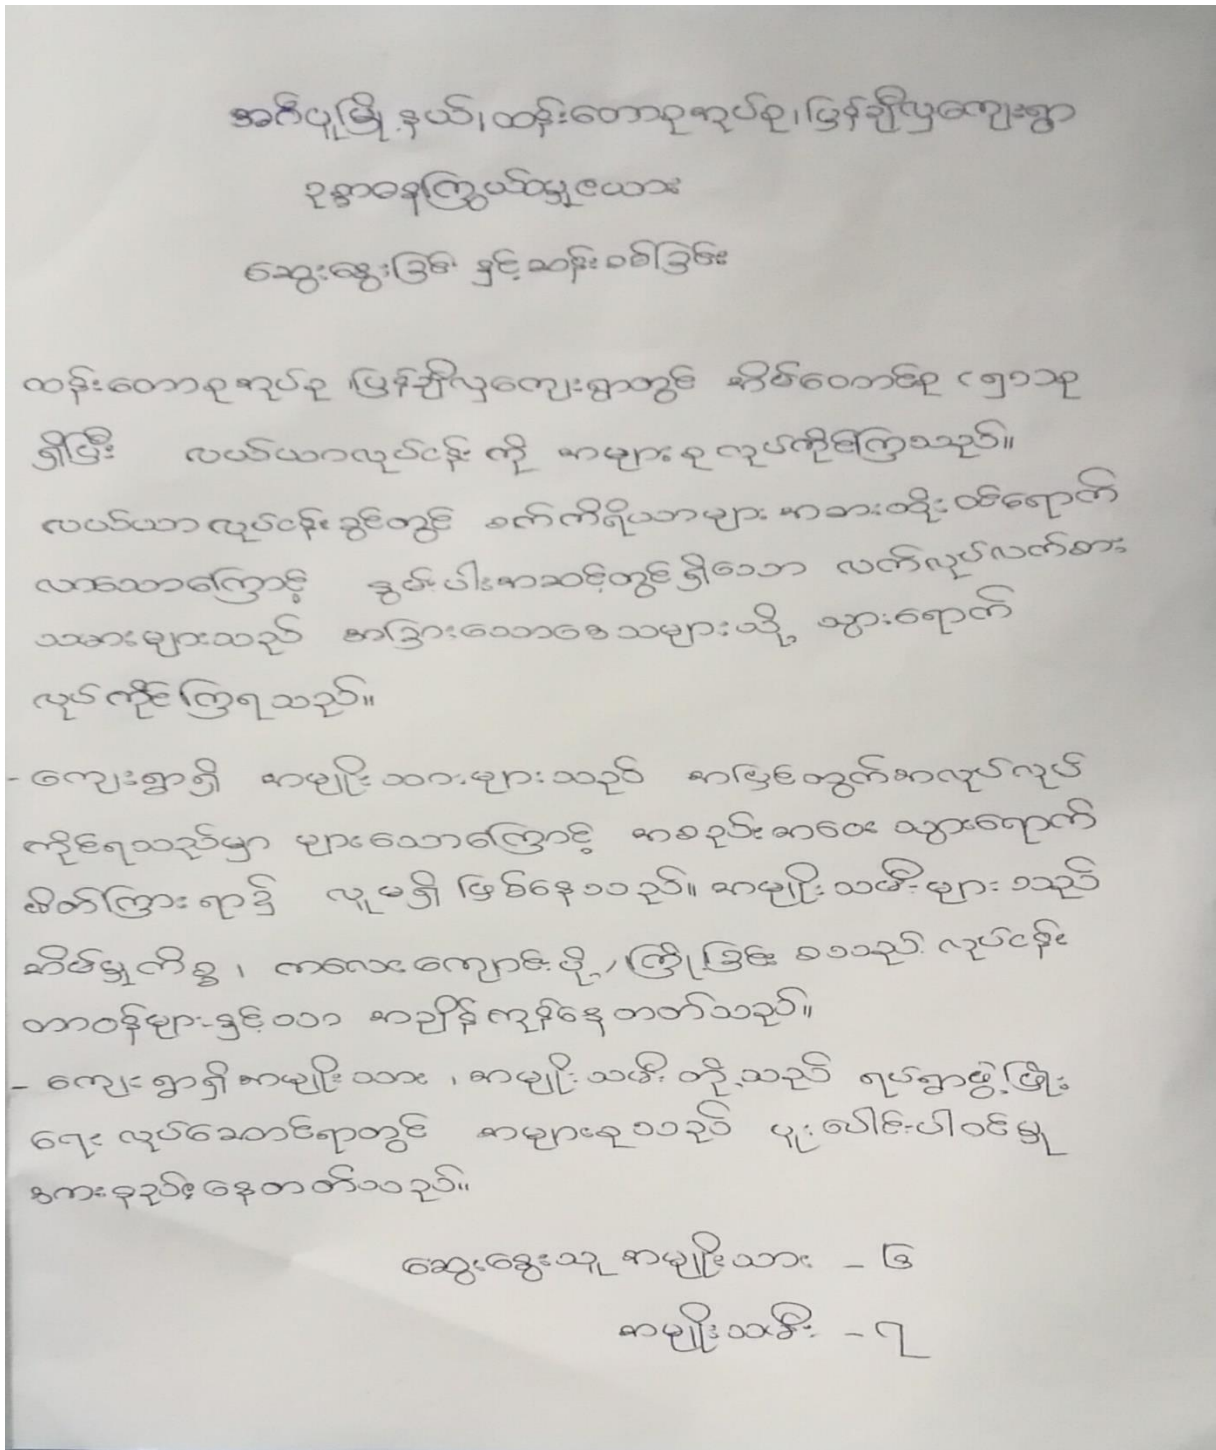 အင်္ဂပူမြို့နယ်၊ထန်းတောစုအုပ်စု၊ပြန်ချီလှကျေးရွာ
ဥစ္စာဓနကြွယ်ဝမှုဇယား
ဆွေးနွေးခြင်း နှင့်ဆန်းစစ်ခြင်း
ထန်းတောစုအုပ်စု ၊ပြန်ချီလှကျေးရွာတွင် အိမ်ခြေ
ရှိပြီး လယ်ယာလုပ်ငန်း ကို အများစု လုပ်ကိုင်ကြသည်။
လယ်ယာ လုပ်ငန်း ခွင်တွင် စက်ကိရိယာများ အစားထိုး ဝင်ရောက်
လာသောကြောင့် နွမ်းပါးအဆင့်တွင်ရှိသော လက်လုပ်လက်စား
သမားများသည် အခြားသောဒေသများသို့ သွားရောက်
လုပ်ကိုင်ကြရသည်။
- ကျေးရွာရှိ အမျိုးသားများသည် အပြင်ထွက်အလုပ်လုပ်
ကိုင်ရသည်မှာ များသောကြောင့် အစည်းအဝေး သွားရောက်
ဖိတ်ကြားရာ၌ လူမရှိ ဖြစ်နေသည်။ အမျိုးသမီးများ သည်
အိမ်မှုကိစ္စ ၊ ကလေးကျောင်းပို့၊ကြိုခြင်း စသည့် လုပ်ငန်း
တာဝန်များနှင့်သာ အချိန်ကုန်နေတတ်သည်။
- ကျေးရွာရှိအမျိုးသား ၊အမျိုးသမီးတို့သည် ရပ်ရွာဖွံ့ဖြိုး
ရေး လုပ်ဆောင်ရာတွင် အများစုသည် ပူးပေါင်းပါဝင်မှု
အားနည်းနေတတ်သည်။
ဆွေးနွေးသူ အမျိုးသား - ၆
အမျိုးသမီး - ၇